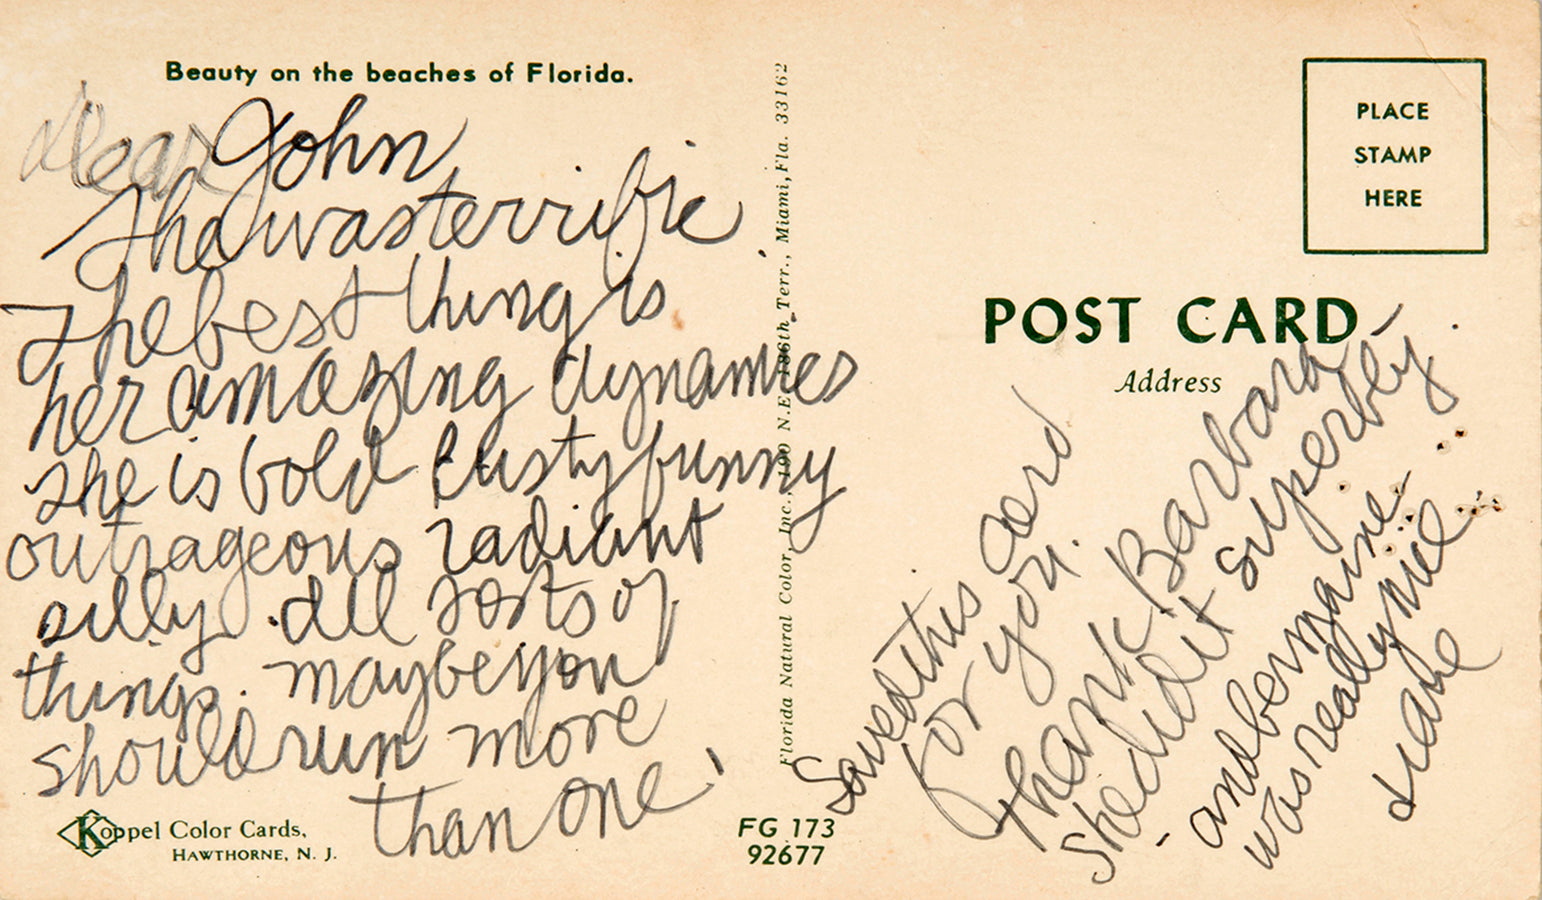 Beauty on the beaches of Florida.
Dear John
She was terrific
The best thing is
her amazing dynamics
she is bold lusty funny
outrageous radiant
silly. all sorts of
things. maybe you
should run more
than one!
Koppel Color Cards,
HAWTHORNE, N. J.
FG 173
92677
Florida Natural Color, Inc., 190 N.E. 186th Terr., Miami, Fla. 33162
PLACE
STAMP
HERE
POST CARD
Address
Saved this card
for you.
Thank Barbara
she did it superbly.
- and bermaine
was really nice
diane